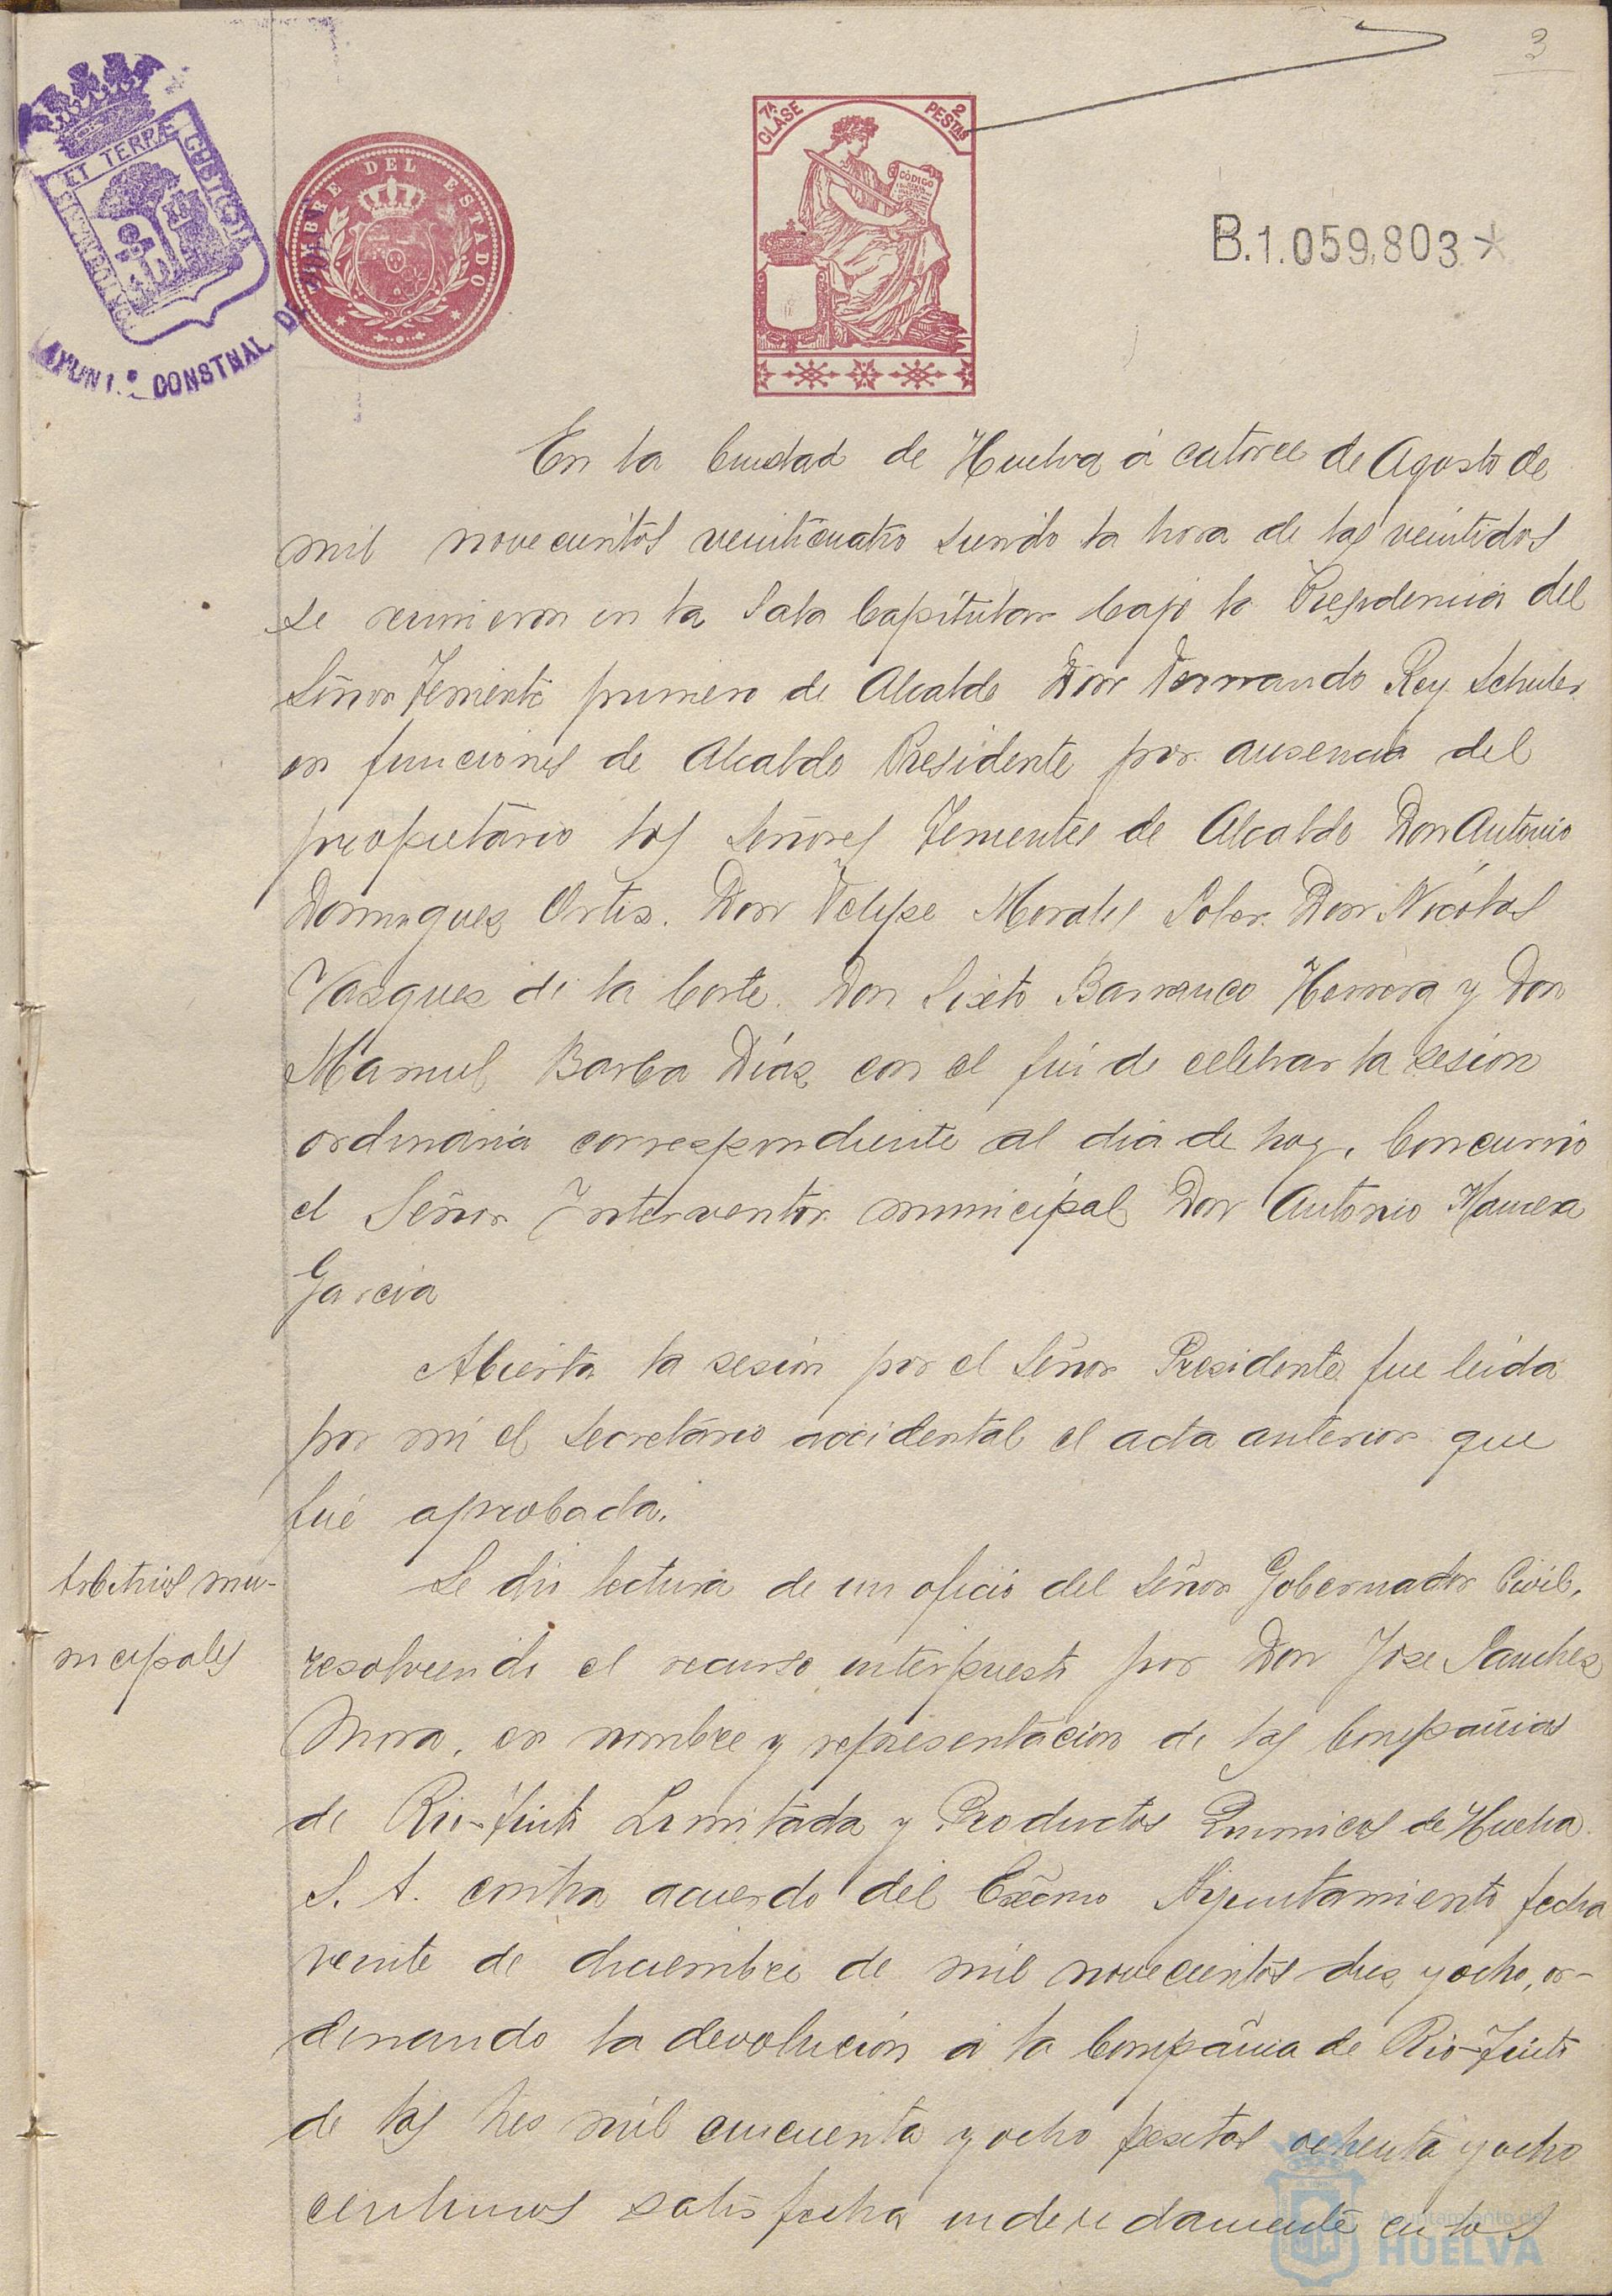 3
7ª CLASE
2 PESTAS
CÓDIGO
TIMBRE DEL ESTADO
ET TERRÆ CUSTODIA
AYUNT.º CONSTNAL DE
B.1.059,803*
En la Ciudad de Huelva á catorce de Agosto de
mil novecientos veinticuatro siendo la hora de las veintidos
se reunieron en la Sala Capitular bajo la Presidencia del
Señor Teniente primero de Alcalde Don Fernando Rey Schuler
en funciones de Alcalde Presidente por ausencia del
propietario los Señores Tenientes de Alcalde Don Antonio
Dominguez Ortiz. Don Felipe Morales Soler. Don Nicolas
Vazquez de la Corte. Don Sixto Barranco Herrera y Don
Manuel Barba Díaz con el fin de celebrar la sesion
ordinaria correspondiente al dia de hoy. Concurrió
el Señor Interventor municipal Don Antonio
Garcia
Abierta la sesión por el Señor Presidente fue leida
por mi el Secretario accidental el acta anterior que
fué aprobada.
Arbitrios mu-
nicipales
Se dio lectura de un oficio del Señor Gobernador Civil,
resolviendo el recurso interpuesto por Don Jose Sanchez
Mora, en nombre y representacion de las Compañias
de Rio-Tinto Limitada y Productos Quimicos de Huelva
S. A. contra acuerdo del Excmo Ayuntamiento fecha
veinte de diciembre de mil novecientos diez y ocho, or-
denando la devolucion á la Compañia de Rio-Tinto
de las tres mil cincuenta y ocho pesetas ochenta y ocho
centimos satisfecha indebidamente en los
Ayuntamiento de
HUELVA